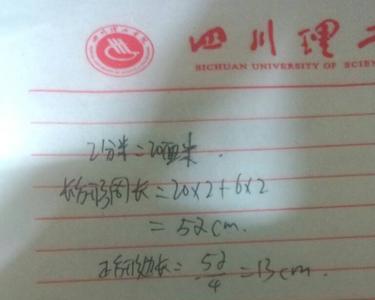 四川理工
SICHUAN UNIVERSITY OF SCIEN
2分米=20厘米.
长方形周长=20×2+6×2
=52cm.
正方形边长=52/4=13cm.